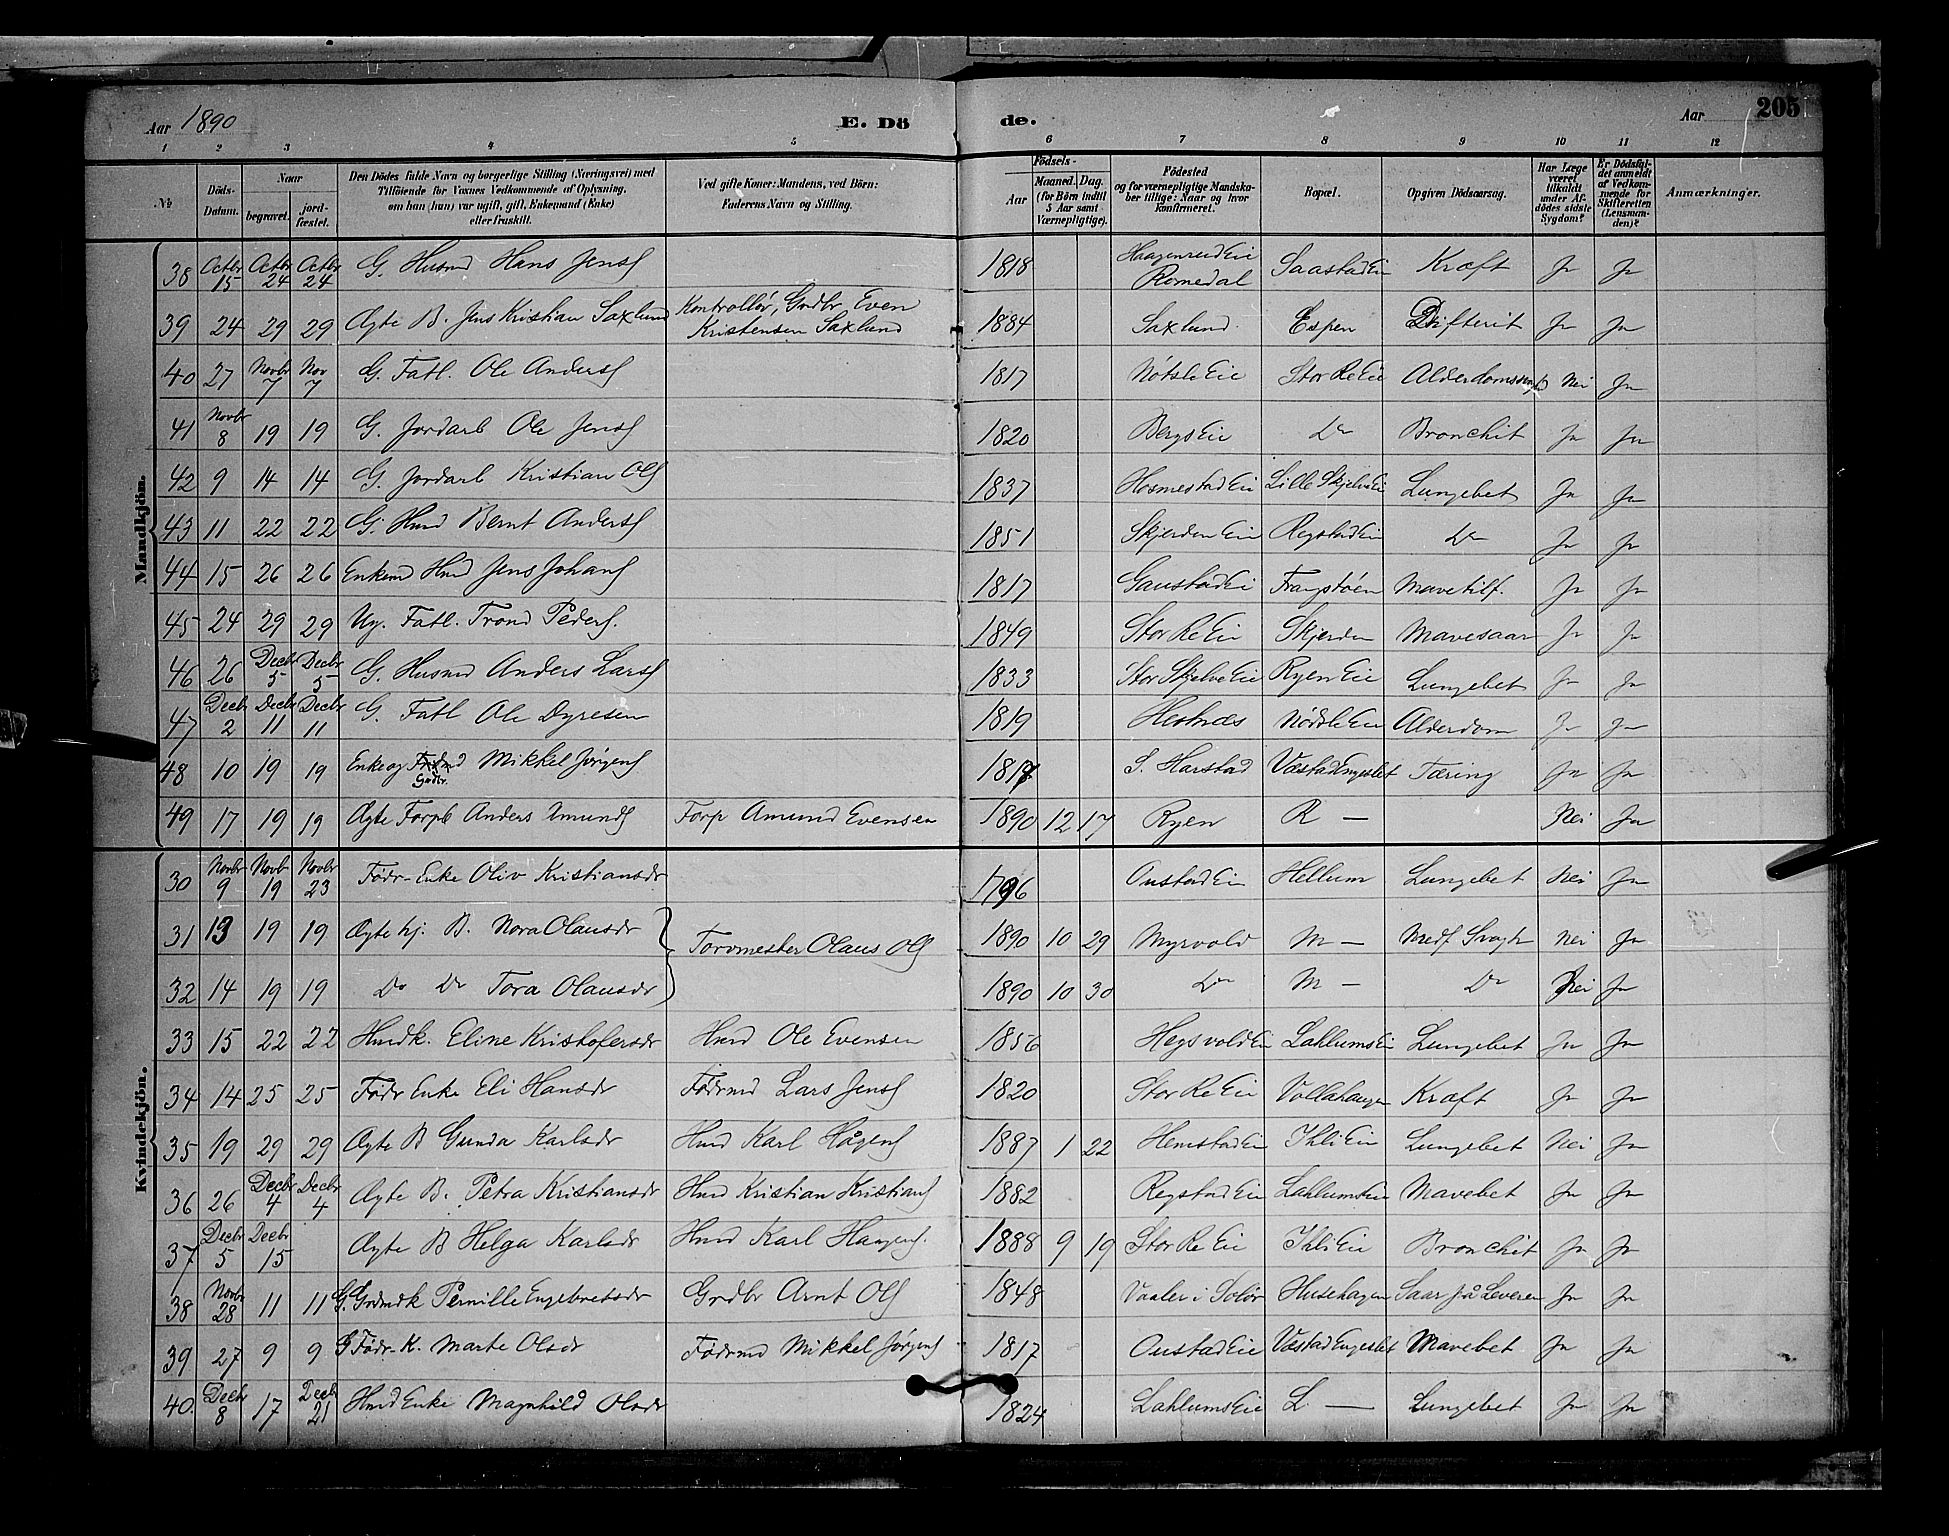 Aar 1890 E. Dö de. Aar 205
1 2 3 4 5 6 7 8 9 10 11 12
№ Döds-Datum. Naar begravet. jord-fæstet. Den Dödes fulde Navn og borgerlige Stilling (Næringsvei) med Tilföiende for Voxnes Vedkommende af Oplysning, om han (hun) var ugift, gift, Enkemand (Enke) eller fraskilt. Ved gifte Koner: Mandens, ved Börn: Faderens Navn og Stilling. Födsels- Aar Maaned. Dag. (for Börn indtil 5 Aar samt Værnepligtige). Födested og for værnepligtige Mandskaber tillige: Naar og hvor konfirmeret. Bopæl. Opgiven Dödsaarsag. Har Læge været tilkaldt under Afdödes sidste Sygdom? Er Dödsfaldet anmeldt af Vedkommende for Skifteretten (Lensmanden)? Anmærkninger.
Mandkjön.
38 Octbr 15 Octbr 24 Octbr 24 G. Husmd Hans Jens 1818 Haagenrud Eie Romedal Saastad Ei Kræft Ja Ja
39 24 29 29 Ægte B. Jens Kristian Saxlund Kontrollør, Grdbr Even Kristensen Saxlund 1884 Saxlund. Espen Difterit Ja Ja
40 27 Novbr 7 Nov 7 G. Fatl. Ole Anders 1817 Nøtsle Eie Stor Re Eie Nei Ja
41 Novbr 8 19 19 G. Jordarb Ole Jens 1820 Bergs Eie Do Bronchit Ja Ja
42 9 14 14 G. Jordarb Kristian Ols 1837 Hosmestad Eie Lille Skjelve Ei Lungebet Ja Ja
43 11 22 22 G. Hmd Bernt Anders 1851 Skjerden Eie Regstad Ei Do Ja Ja
44 15 26 26 Enkemd Hmd Jens Johans 1817 Gaustad Ei Frangstøen Mavetilf. Ja Ja
45 24 29 29 Ug. Fatl. Trond Peders. 1849 Stor Re Eie Skjerden Mavesaar Ja Ja
46 26 Decbr 5 Decbr 5 G. Husmd Anders Lars 1833 Stor Skjelve Eie Ryen Eie Lungebet Ja Ja
47 Decbr 2 Decbr 11 Decbr 11 G. Fatl Ole Dyresen 1819 Hestnæs Nødsle Eie Alderdom Ja Ja
48 10 19 19 Enke og Grdbr. Mikkel Jørgens 1817 S. Harstad Væstad Engeslet Tæring Ja Ja
49 17 19 19 Ægte Forpb Anders Amunds Forp Amund Evensen 1890 12 17 Ryen R — Nei Ja
Kvindekjön.
30 Novbr 9 Novb 19 Novbr 23 Födr-Enke Oliv Kristiansdr 1796 Onstad Ei Hellum Lungebet Nei Ja
31 13 19 19 Ægte hj. B. Nora Olausdr Torvmester Olaus Ols 1890 10 29 Myrvold M — Medf Svagh Nei Ja
32 14 19 19 Do Do Tora Olausdr 1890 10 30 Do M — Do Nei Ja
33 15 22 22 Hmdk. Eline Kristofersdr Hmd Ole Evensen 1856 Hegsvold Ei Lahlums Ei Lungebet Ja Ja
34 14 25 25 Födr Enke Eli Hansdr Födrmd Lars Jens 1820 Stor Re Eie Vollahaugen Kræft Ja Ja
35 19 29 29 Ægte B Gunda Karlsdr Hmd Karl Hågens 1887 1 22 Hemstad Ei Ihli Eie Lungebet Nei Ja
36 26 Decbr 4 Decbr 4 Ægte B. Petra Kristiansdr Hmd Kristian Kristians 1882 Regstad Eie Lahlums Eie Mavebet Ja Ja
37 Decbr 5 Decbr 15 Ægte B Helga Karlsdr Hmd Karl Haagens. 1888 9 19 Stor Re Eie Ihli Eie Bronchit Ja Ja
38 Novbr 28 11 11 G. Grdmdk Pernille Engebretsdr Grdbr Arnt Ols 1848 Vaaler i Solør Husehagen Saar på Leveren Ja Ja
39 27 9 9 G Födr-K. Marte Olsdr Födrmd Mikkel Jørgens 1817 Onstad Eie Væstad Engeslet Mavebet Ja Ja
40. Decbr 8 17 Decbr 21 Hmd Enke Magnhild Olsdr 1824 Lahlums Eie L. — Lungebet Ja Ja